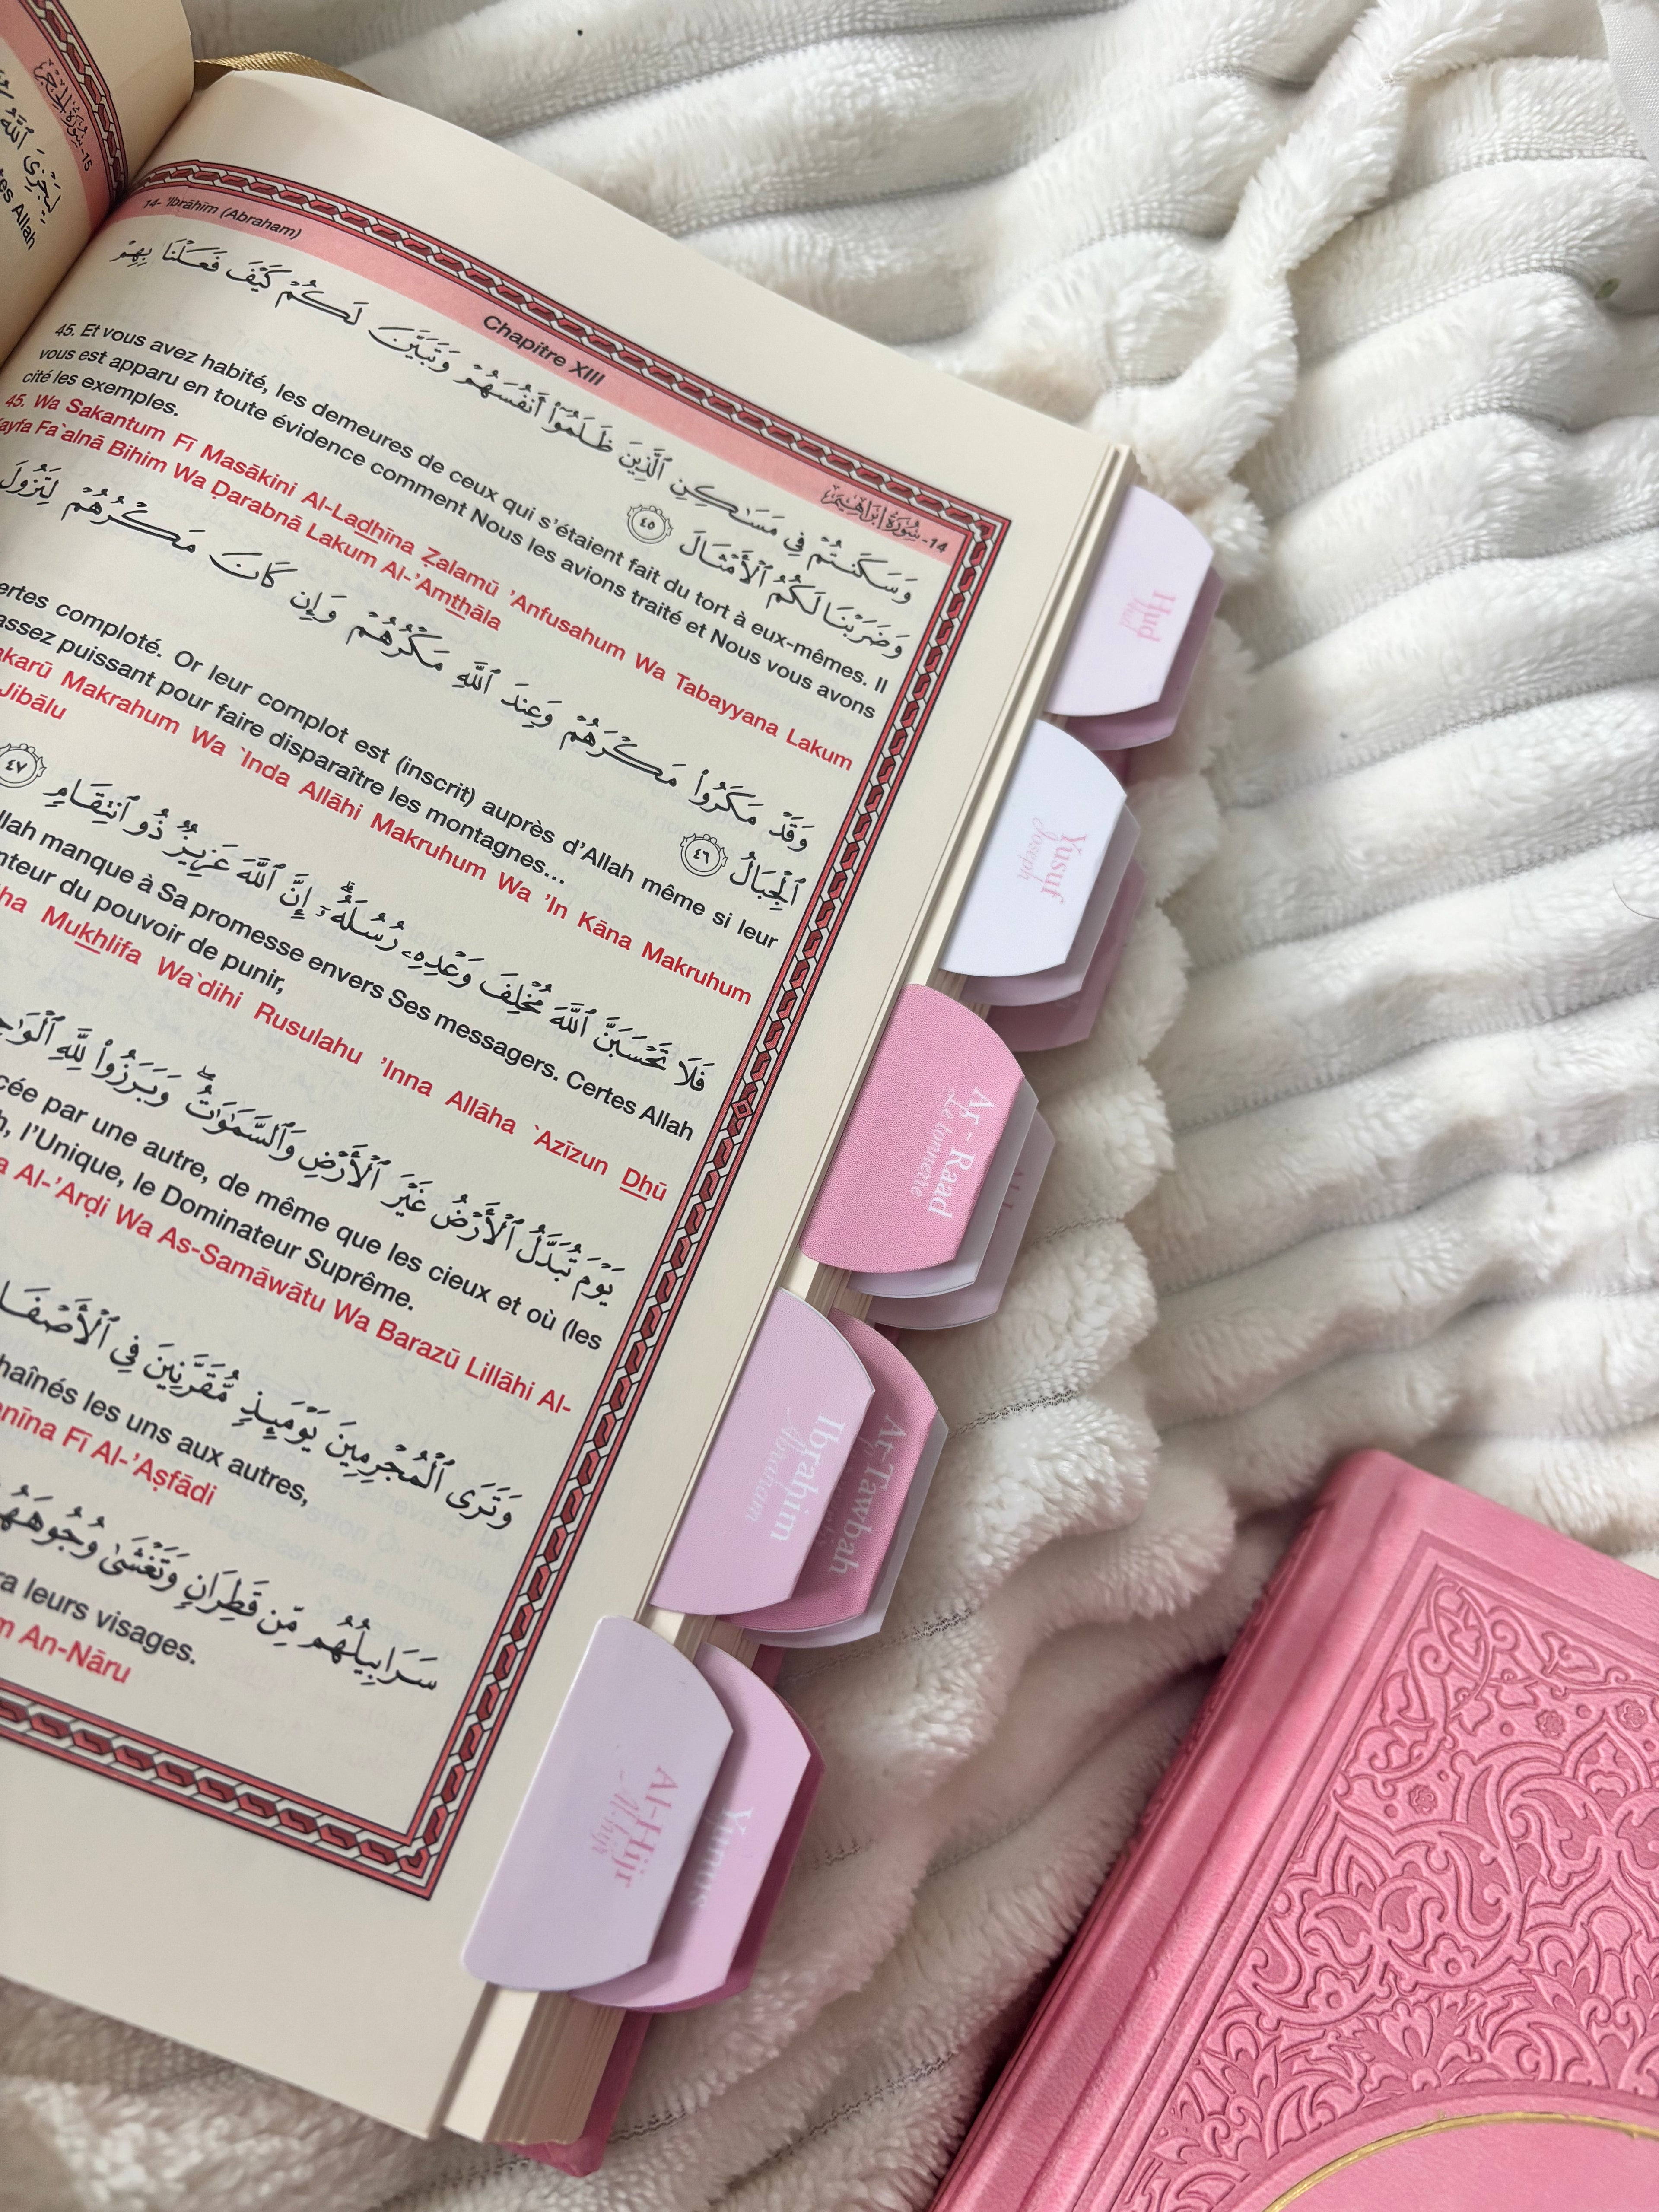 15- سُورَةُ الحِجر
لِيَجْزِيَ ٱللَّهُ
Allah
14- 'Ibrāhīm (Abraham)
Chapitre XIII
14- سُورَةُ إِبْرَاهِيم
وَسَكَنتُمْ فِي مَسَـٰكِنِ ٱلَّذِينَ ظَلَمُوٓا۟ أَنفُسَهُمْ وَتَبَيَّنَ لَكُمْ كَيْفَ فَعَلْنَا بِهِمْ
وَضَرَبْنَا لَكُمُ ٱلْأَمْثَالَ ٤٥
45. Et vous avez habité, les demeures de ceux qui s'étaient fait du tort à eux-mêmes. Il
vous est apparu en toute évidence comment Nous les avions traité et Nous vous avons
cité les exemples.
45. Wa Sakantum Fī Masākini Al-Ladhīna Ẓalamū 'Anfusahum Wa Tabayyana Lakum
Kayfa Fa`alnā Bihim Wa Ḍarabnā Lakum Al-'Amthāla
وَقَدْ مَكَرُوا۟ مَكْرَهُمْ وَعِندَ ٱللَّهِ مَكْرُهُمْ وَإِن كَانَ مَكْرُهُمْ لِتَزُولَ
ٱلْجِبَالُ ٤٦
certes comploté. Or leur complot est (inscrit) auprès d'Allah même si leur
assez puissant pour faire disparaître les montagnes...
Makarū Makrahum Wa `Inda Allāhi Makruhum Wa 'In Kāna Makruhum
Jibālu
فَلَا تَحْسَبَنَّ ٱللَّهَ مُخْلِفَ وَعْدِهِۦ رُسُلَهُۥٓ ۗ إِنَّ ٱللَّهَ عَزِيزٌ ذُو ٱنتِقَامٍ ٤٧
Allah manque à Sa promesse envers Ses messagers. Certes Allah
du pouvoir de punir,
Mukhlifa Wa`dihi Rusulahu 'Inna Allāha `Azīzun Dhū
يَوْمَ تُبَدَّلُ ٱلْأَرْضُ غَيْرَ ٱلْأَرْضِ وَٱلسَّمَـٰوَٰتُ ۖ وَبَرَزُوا۟ لِلَّهِ
par une autre, de même que les cieux et où (les
l'Unique, le Dominateur Suprême.
Al-'Arḍi Wa As-Samāwātu Wa Barazū Lillāhi Al-
وَتَرَى ٱلْمُجْرِمِينَ يَوْمَئِذٍ مُّقَرَّنِينَ فِي
les uns aux autres,
Fī Al-'Aṣfādi
سَرَابِيلُهُم مِّن قَطِرَانٍ وَتَغْشَىٰ وُجُوهَهُمُ
leurs visages.
An-Nāru
Hud
Hud
Yusuf
Joseph
Ar-Raad
Le tonnerre
Ibrahim
Abraham
At-Tawbah
Al-Hijr
Al-hijr
Yunus